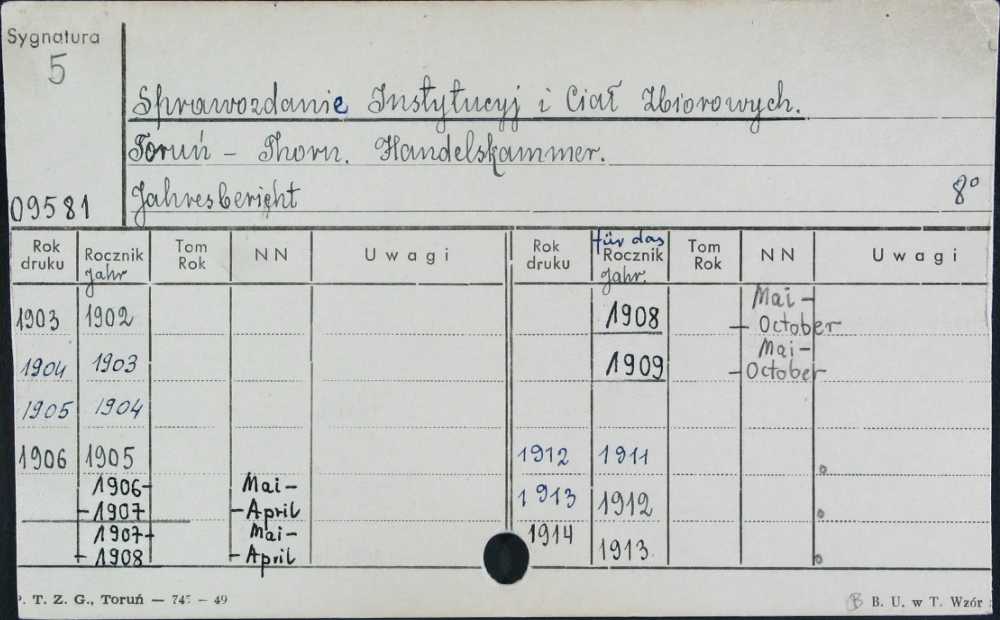 Sygnatura
5
09581
Sprawozdanie Instytucyj i Ciał Zbiorowych.
Toruń – Thorn. Handelskammer.
Jahresbericht 8°
Rok druku Rocznik Jahr Tom Rok NN Uwagi Rok druku für das Rocznik Jahr. Tom Rok NN Uwagi
1903 1902 1908 Mai – – October
1904 1903 1909 Mai – – October
1905 1904
1906 1905 1912 1911
1906– –1907 Mai – – April 1913 1912
1907– –1908 Mai – – April 1914 1913
T. Z. G., Toruń — 745 – 49 B. U. w T. Wzór